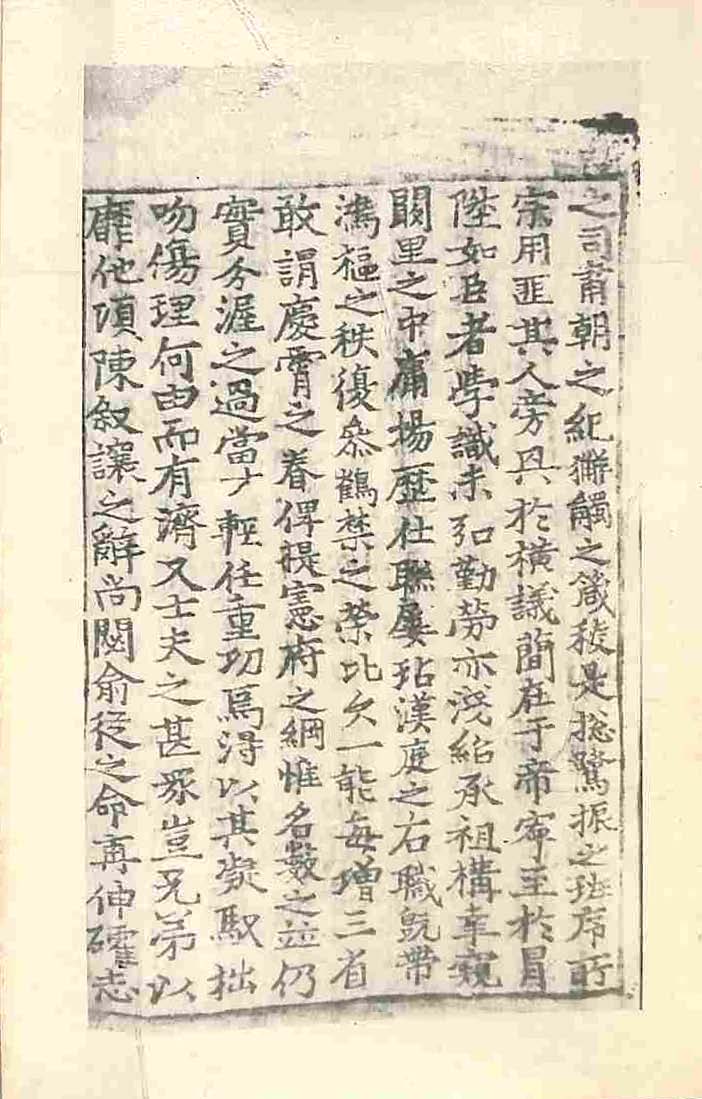 之司肅朝之紀獬觸之箴稜是揔鷺振之班序所
宗用匪其人旁興於橫議簡在于帝寧至於冒
陞如臣者學識未弘勤勞亦淺紹承祖構幸窺
闕里之中庸揚歷仕聯屢玷漢庭之右職旣帶
鴻樞之秩復叅鶴禁之榮比欠一能每增三省
敢謂慶霄之眷俾提憲府之綱惟名數之並仍
實分渥之過當才輕任重功焉淂以其凝馭拙
吻傷理何由而有濟又士夫之甚衆豈兄弟以
靡他頃陳叙讓之辭尚閟俞從之命再伸確志